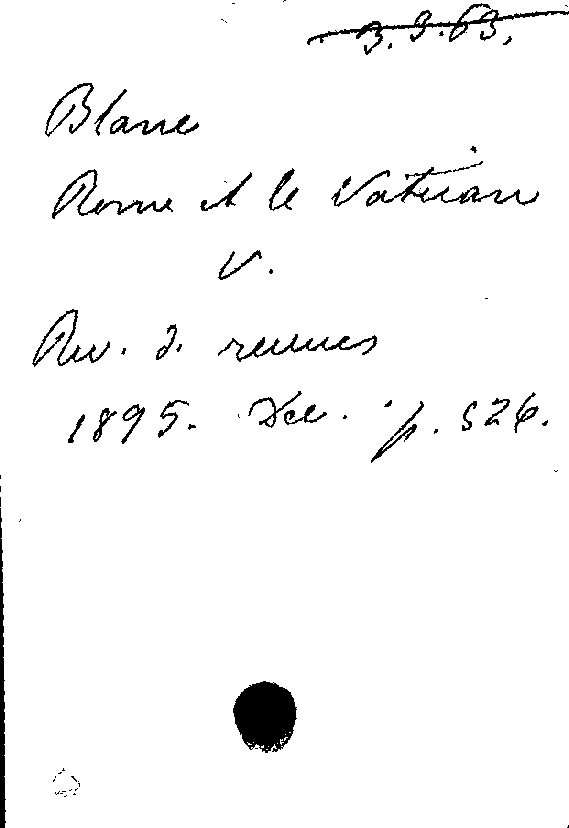 3.3.63.
Blanc
Rome et le Vatican
v.
Rev. d. revues
1895. Dec. p. 526.